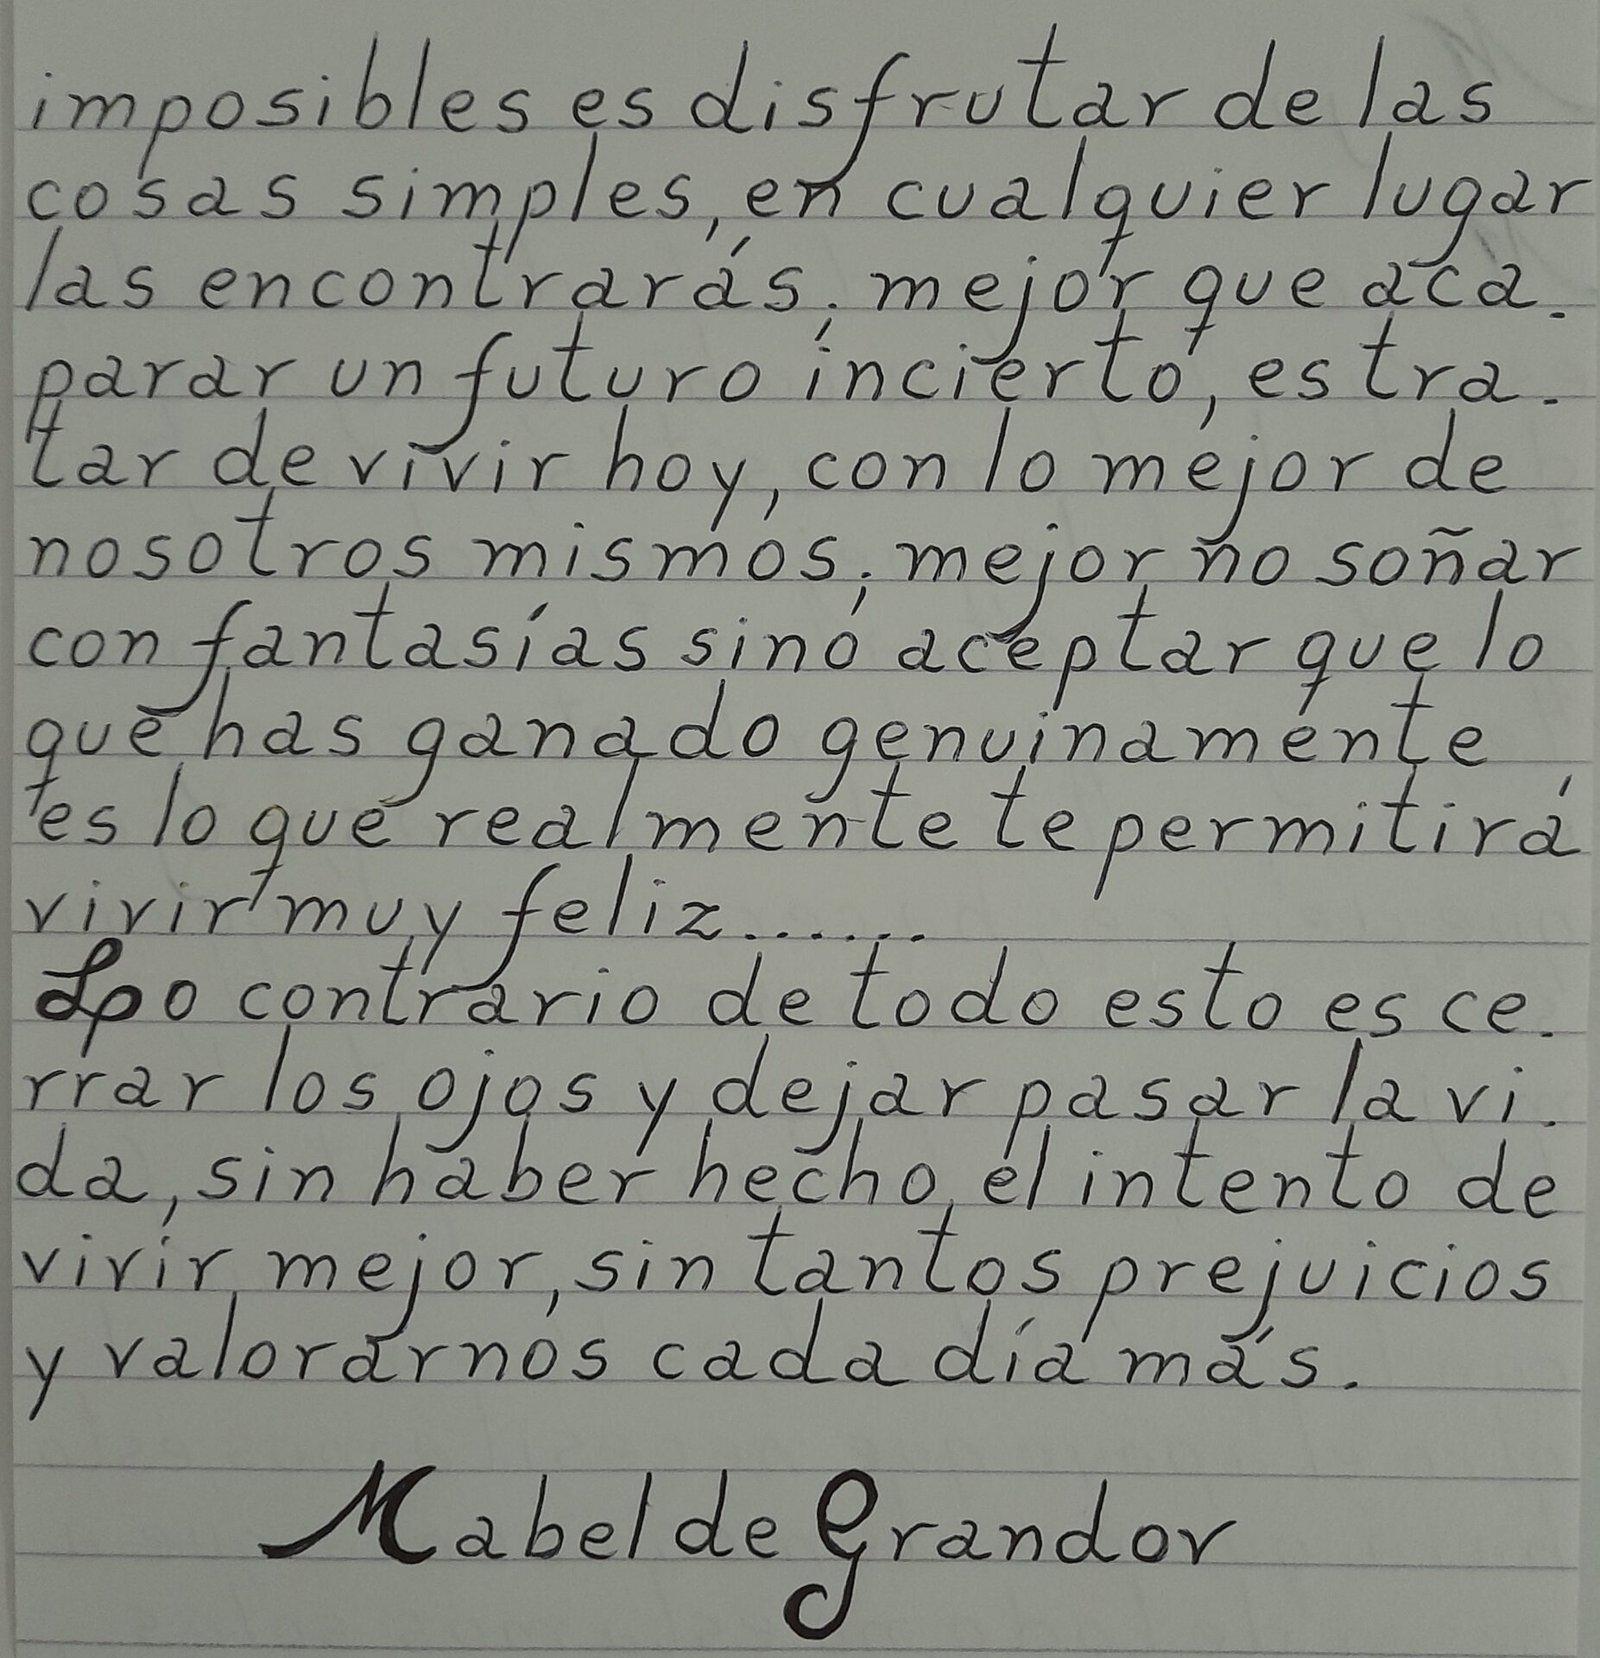 imposibles es disfrutar de las
cosas simples, en cualquier lugar
las encontrarás; mejor que aca.
parar un futuro incierto, es tra.
tar de vivir hoy, con lo mejor de
nosotros mismos; mejor no soñar
con fantasías sino aceptar que lo
que has ganado genuinamente
es lo que realmente te permitirá
vivir muy feliz......
Lo contrario de todo esto es ce.
rrar los ojos y dejar pasar la vi.
da, sin haber hecho el intento de
vivir mejor, sin tantos prejuicios
y valorarnos cada día más.
Mabel de Grandov